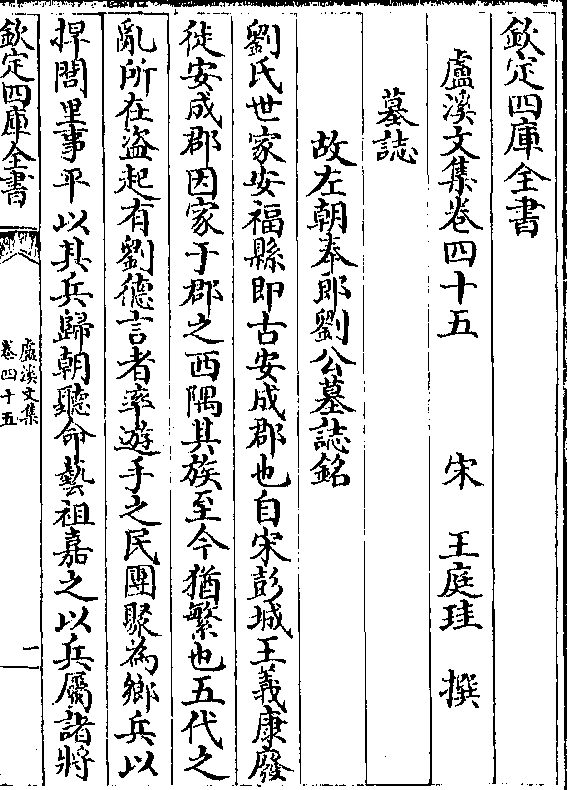 欽定四庫全書
盧溪文集卷四十五 宋 王庭珪 撰
墓誌
故左朝奉郎劉公墓誌銘
劉氏世家安福縣即古安成郡也自宋彭城王義康廢
徙安成郡因家于郡之西隅其族至今猶繁也五代之
亂所在盜起有劉德言者率遊手之民團聚為鄉兵以
捍閭里事平以其兵歸朝聽命藝祖嘉之以兵屬諸將
欽定四庫全書
盧溪文集
卷四十五
一